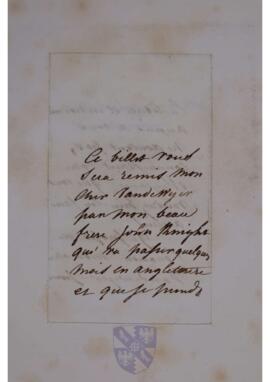 Ce billet vous
sera remis mon
cher Vandeweyer
par mon beau
frere John Knight
qui va passer quelques
mois en angleterre
et que je prends